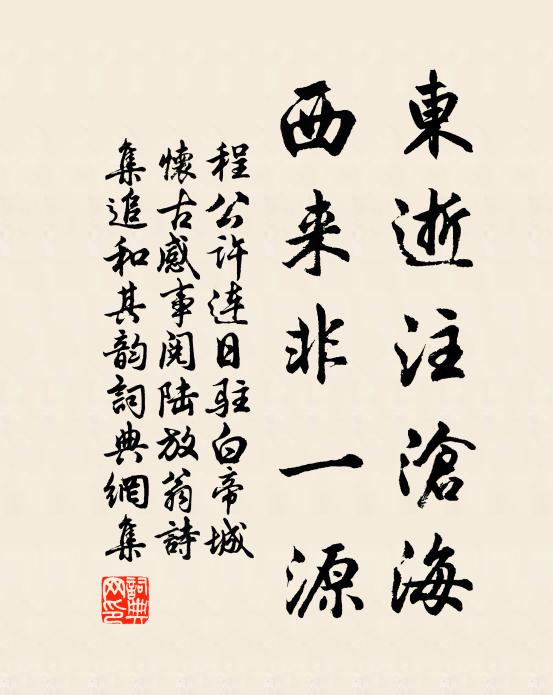 東逝注滄海
西来非一源
程公许連日駐白帝城
懷古感事閱陆放翁詩
集追和其韵詞典網集
詞典網印